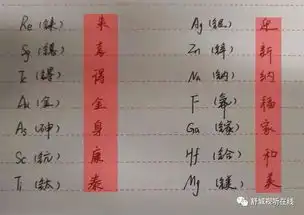 Re (铼) 来 Ag (银)
Sg (𨭎) 喜 Zn (锌) 新
Tc (锝) Na (钠) 纳
Au (金) 金 F (氟) 福
As (砷) 身 Ga (镓) 家
Sc (钪) 康 Hf (铪) 和
Ti (钛) 泰 Mg (镁) 美
舒城视听在线